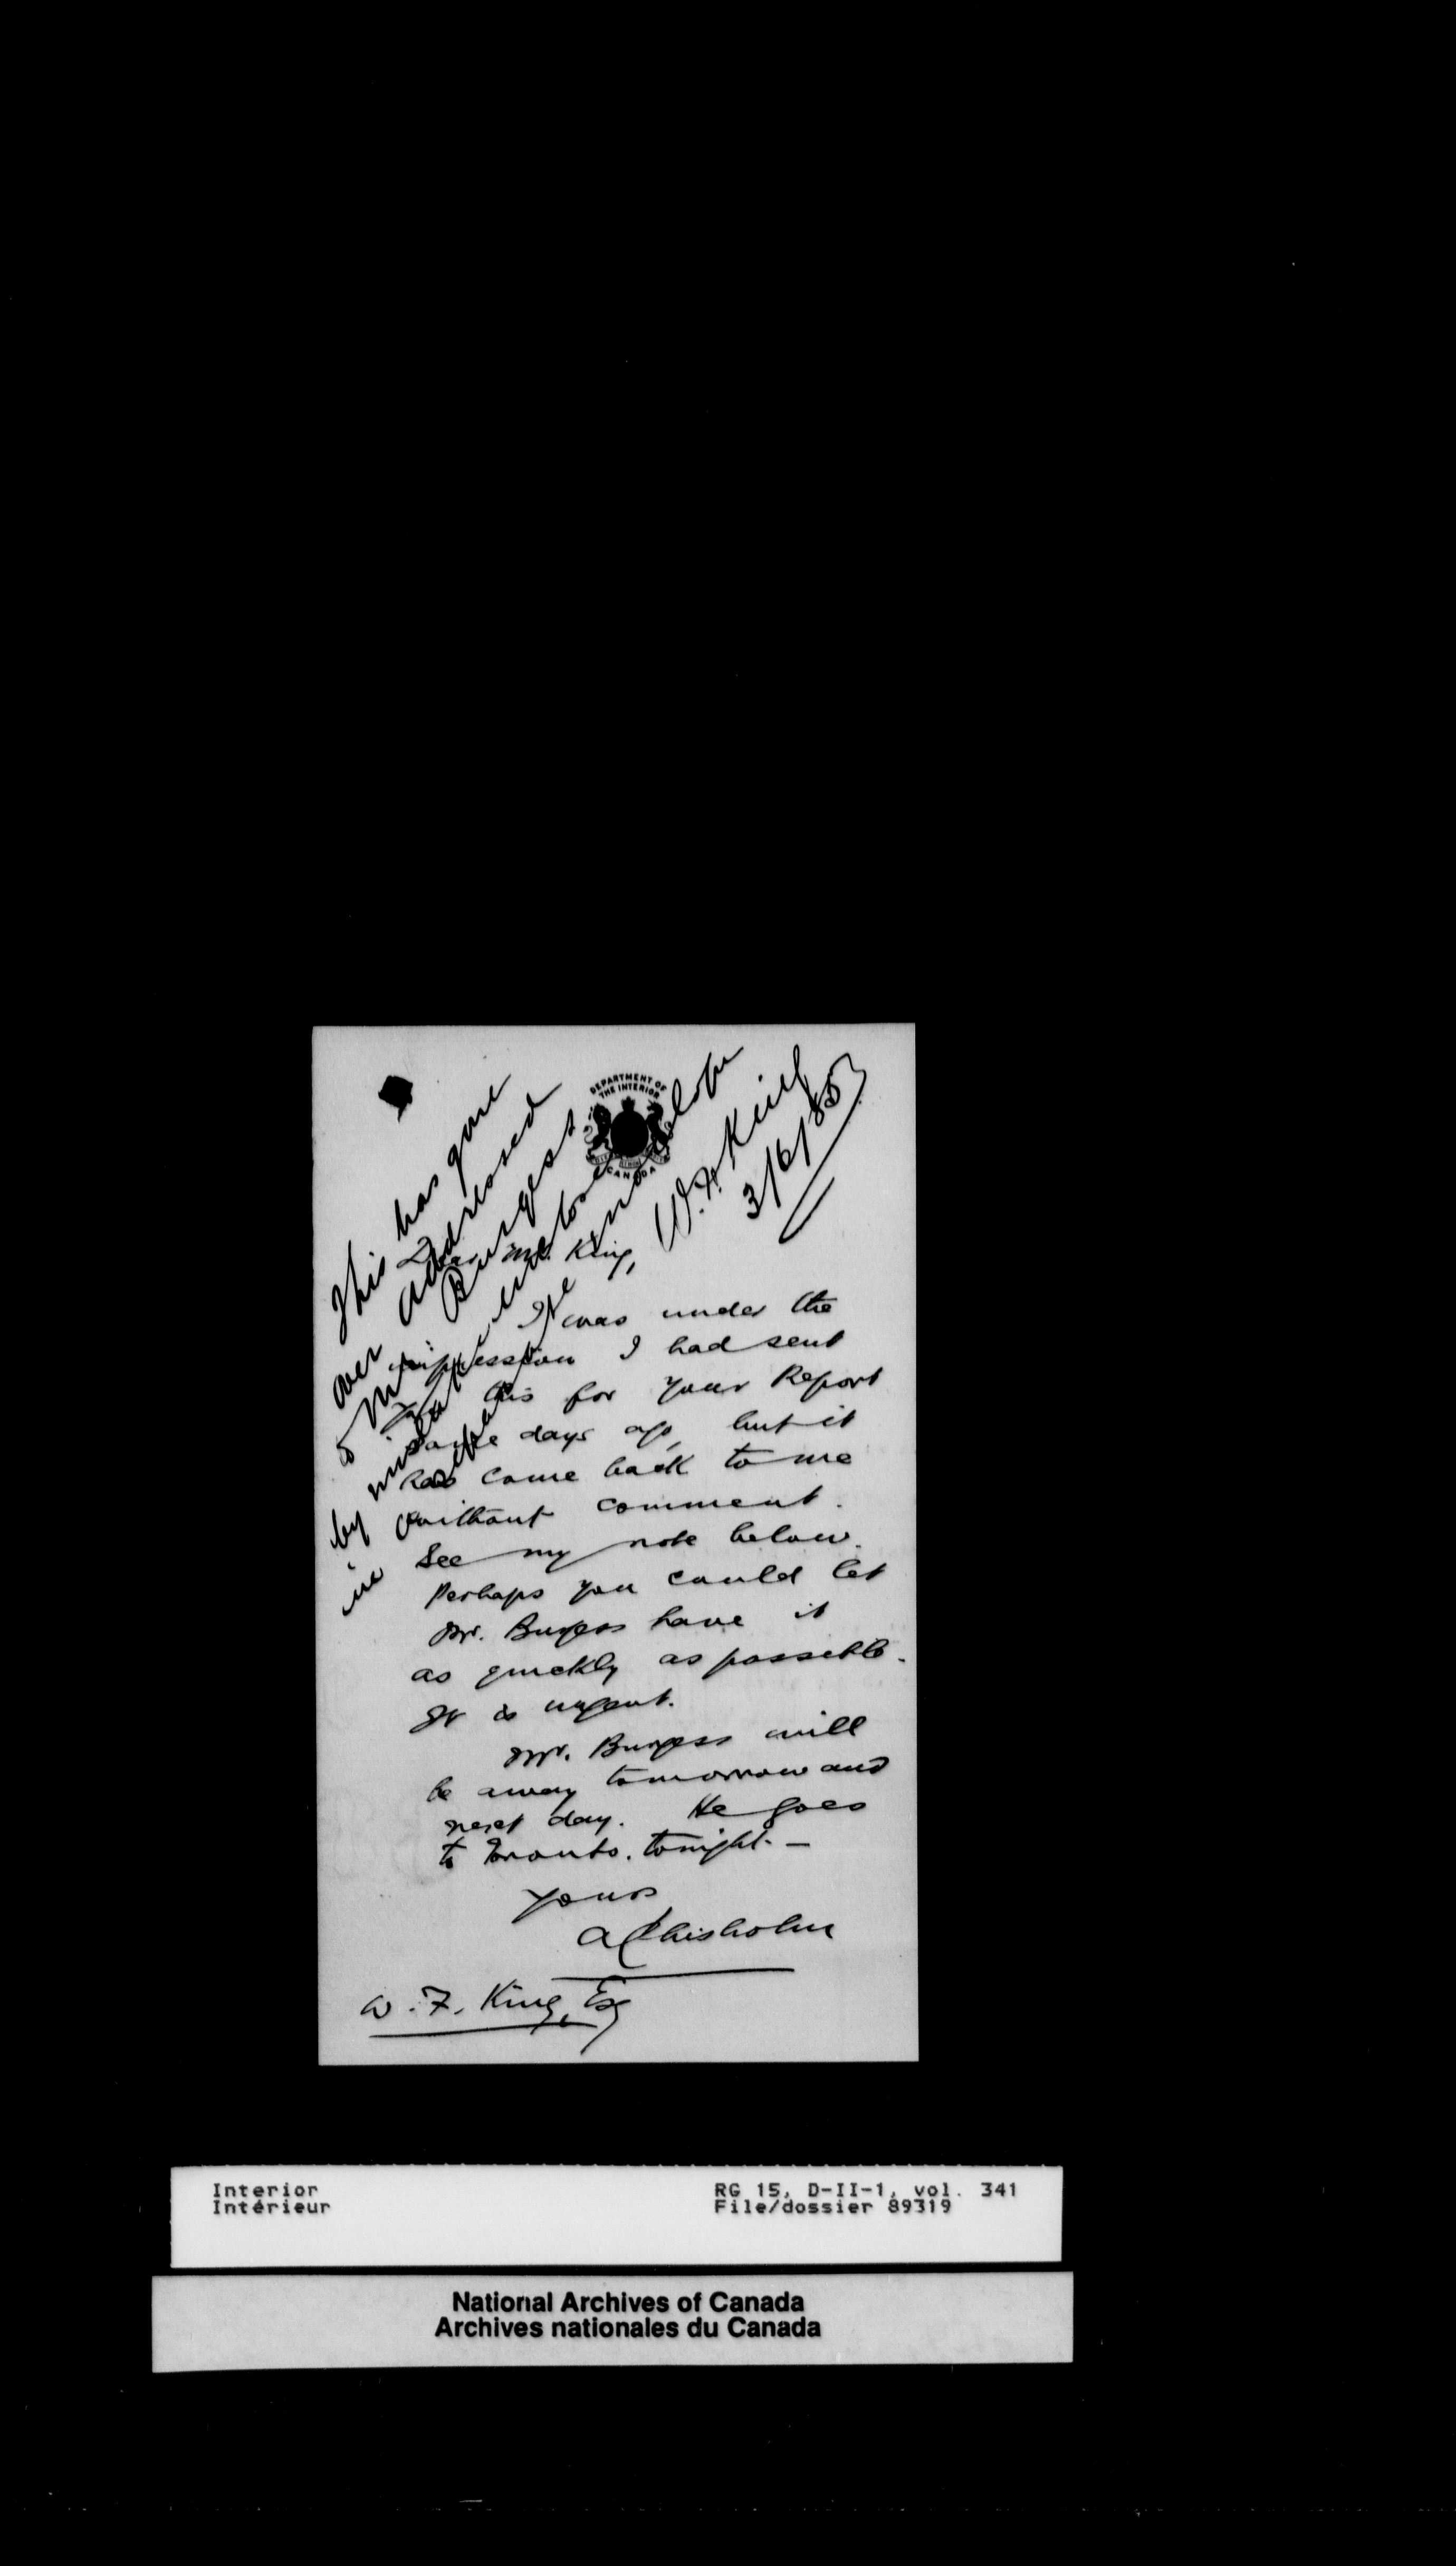 DEPARTMENT OF
THE INTERIOR
CANADA
This has gone
over addressed
to Mr Burgess
by mistake, enclosed
in separate envelope
W.F. King
3/6/85
Dear Mr. King,
I was under the
impression I had sent
you this for your Report
some days ago, but it
has come back to me
without comment.
See my note below.
Perhaps you could let
Mr. Burgess have it
as quickly as possible.
It is urgent.
Mr. Burgess will
be away tomorrow and
next day. He goes
to Toronto. tonight. —
Yours
A Chisholm
W. F. King, Esq
Interior
Intérieur
RG 15, D-II-1, vol. 341
File/dossier 89319
National Archives of Canada
Archives nationales du Canada